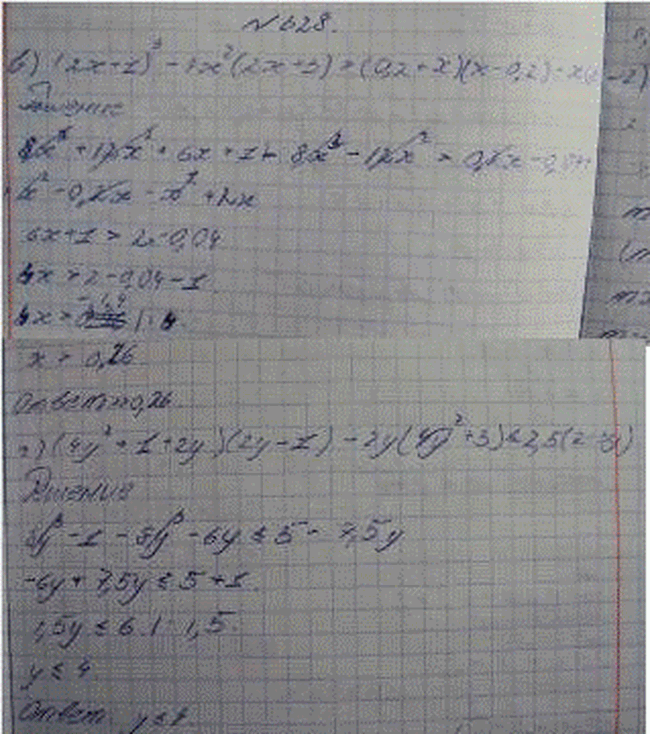 № 628.
в) (2x+1)³ - 4x²(2x+3) > (0,2+x)(x-0,2) - x(
Решение
8x³ + 12x² + 6x + 1 - 8x³ - 12x² > 0,2x - 0,04
x² - 0,2x - x² + 2x
6x+1 > 2x-0,04
4x > 2-0,04-1
4x > -1,04 | : 4.
x > 0,26
Ответ: x>0,26
г) (4y² + 1 + 2y)(2y-1) - 2y(4y²+3) ≤ 2,5(2-3y)
Решение
8y³ - 1 - 8y³ - 6y ≤ 5 - 7,5y
-6y + 7,5y ≤ 5 + 1.
1,5y ≤ 6 | : 1,5.
y ≤ 4
Ответ y ≤ 4